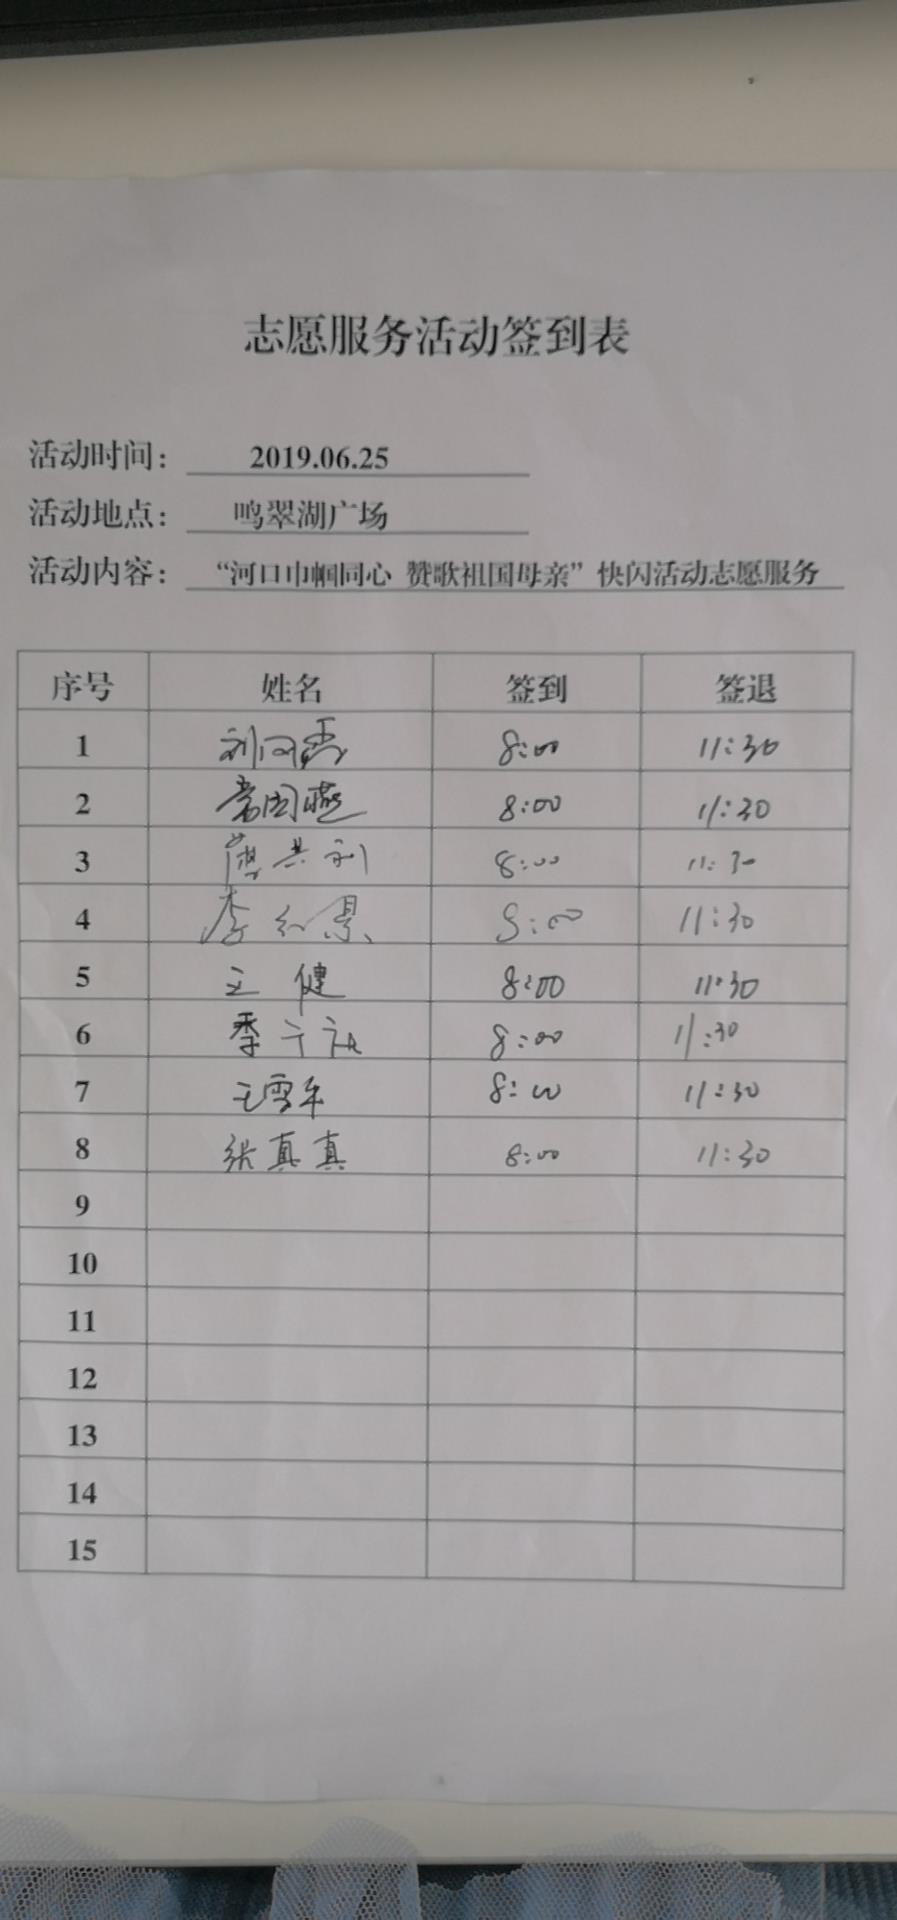 志愿服务活动签到表
活动时间： 2019.06.25
活动地点： 鸣翠湖广场
活动内容： “河口巾帼同心 赞歌祖国母亲”快闪活动志愿服务
序号 姓名 签到 签退
1 刘 8:00 11:30
2 常国燕 8:00 11:30
3 薛共利 8:00 11:30
4 李红景 8:00 11:30
5 王健 8:00 11:30
6 季 8:00 11:30
7 王雪 8:00 11:30
8 张真真 8:00 11:30
9
10
11
12
13
14
15